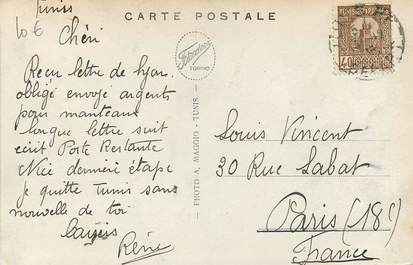 CARTE POSTALE
Tunis
10 €
Chéri
Reçu lettre de Lyon
obligé envoyé argents
pour manteaux
longue lettre suit
écrit Poste Restante
Nice dernière étape
je quitte Tunis sans
nouvelle de toi
Baisers
Rène
TORINO
PHOTO A. MAGGIO - TUNIS -
40
Louis Vincent
30 Rue Labat
Paris (18e)
France